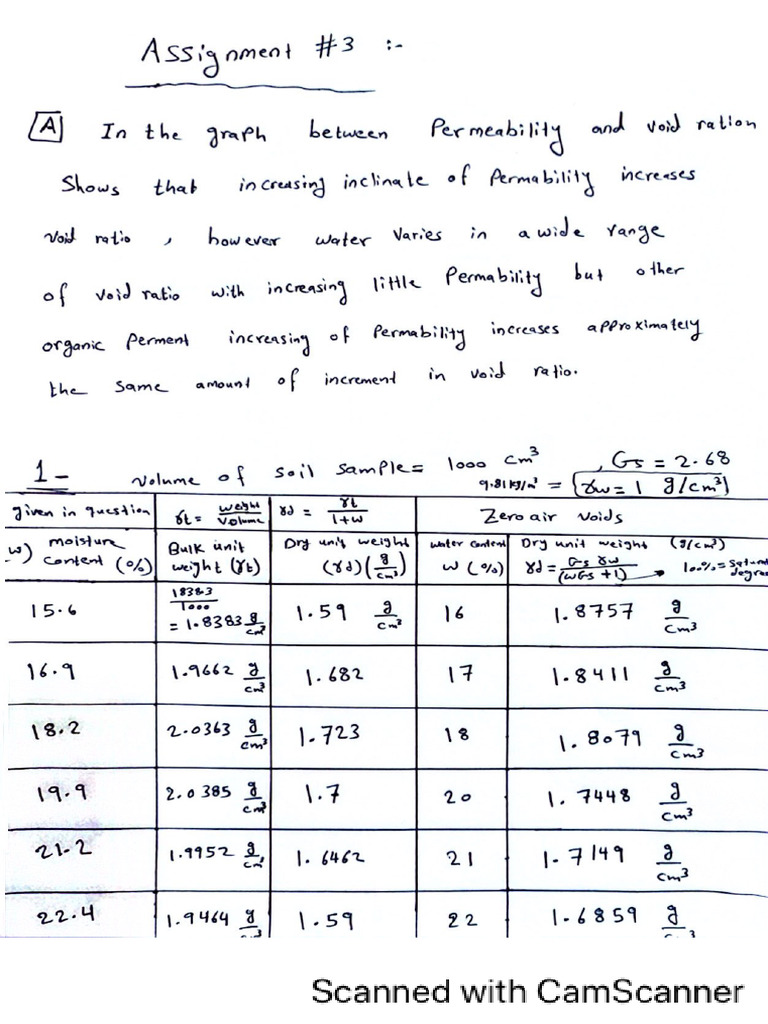 Assignment #3 :-
A In the graph between Permeability and void ration
Shows that increasing inclinate of Permability increases
Void ratio , however water varies in a wide range
of void ratio with increasing little Permability but other
organic Perment increasing of Permability increases approximately
the same amount of increment in void ratio.
1- Volume of soil sample = 1000 cm³ , Gs = 2.68
9.81 kg/m³ = {γw = 1 g/cm³}
given in question | γt = weight/Volume | γd = γt/(1+w) | Zero air voids
w) moisture content (%) | Bulk unit weight (γt) | Dry unit weight (γd) (g/cm³) | water content w (%) | Dry unit weight (g/cm³) γd = Gs γw/(wGs+1) → 100% =
15.6 | 1838.3/1000 = 1.8383 g/cm³ | 1.59 g/cm³ | 16 | 1.8757 g/cm³
16.9 | 1.9662 g/cm³ | 1.682 | 17 | 1.8411 g/cm³
18.2 | 2.0363 g/cm³ | 1.723 | 18 | 1.8079 g/cm³
19.9 | 2.0385 g/cm³ | 1.7 | 20 | 1.7448 g/cm³
21.2 | 1.9952 g/cm³ | 1.6462 | 21 | 1.7149 g/cm³
22.4 | 1.9464 g/cm³ | 1.59 | 22 | 1.6859 g/cm³
Scanned with CamScanner